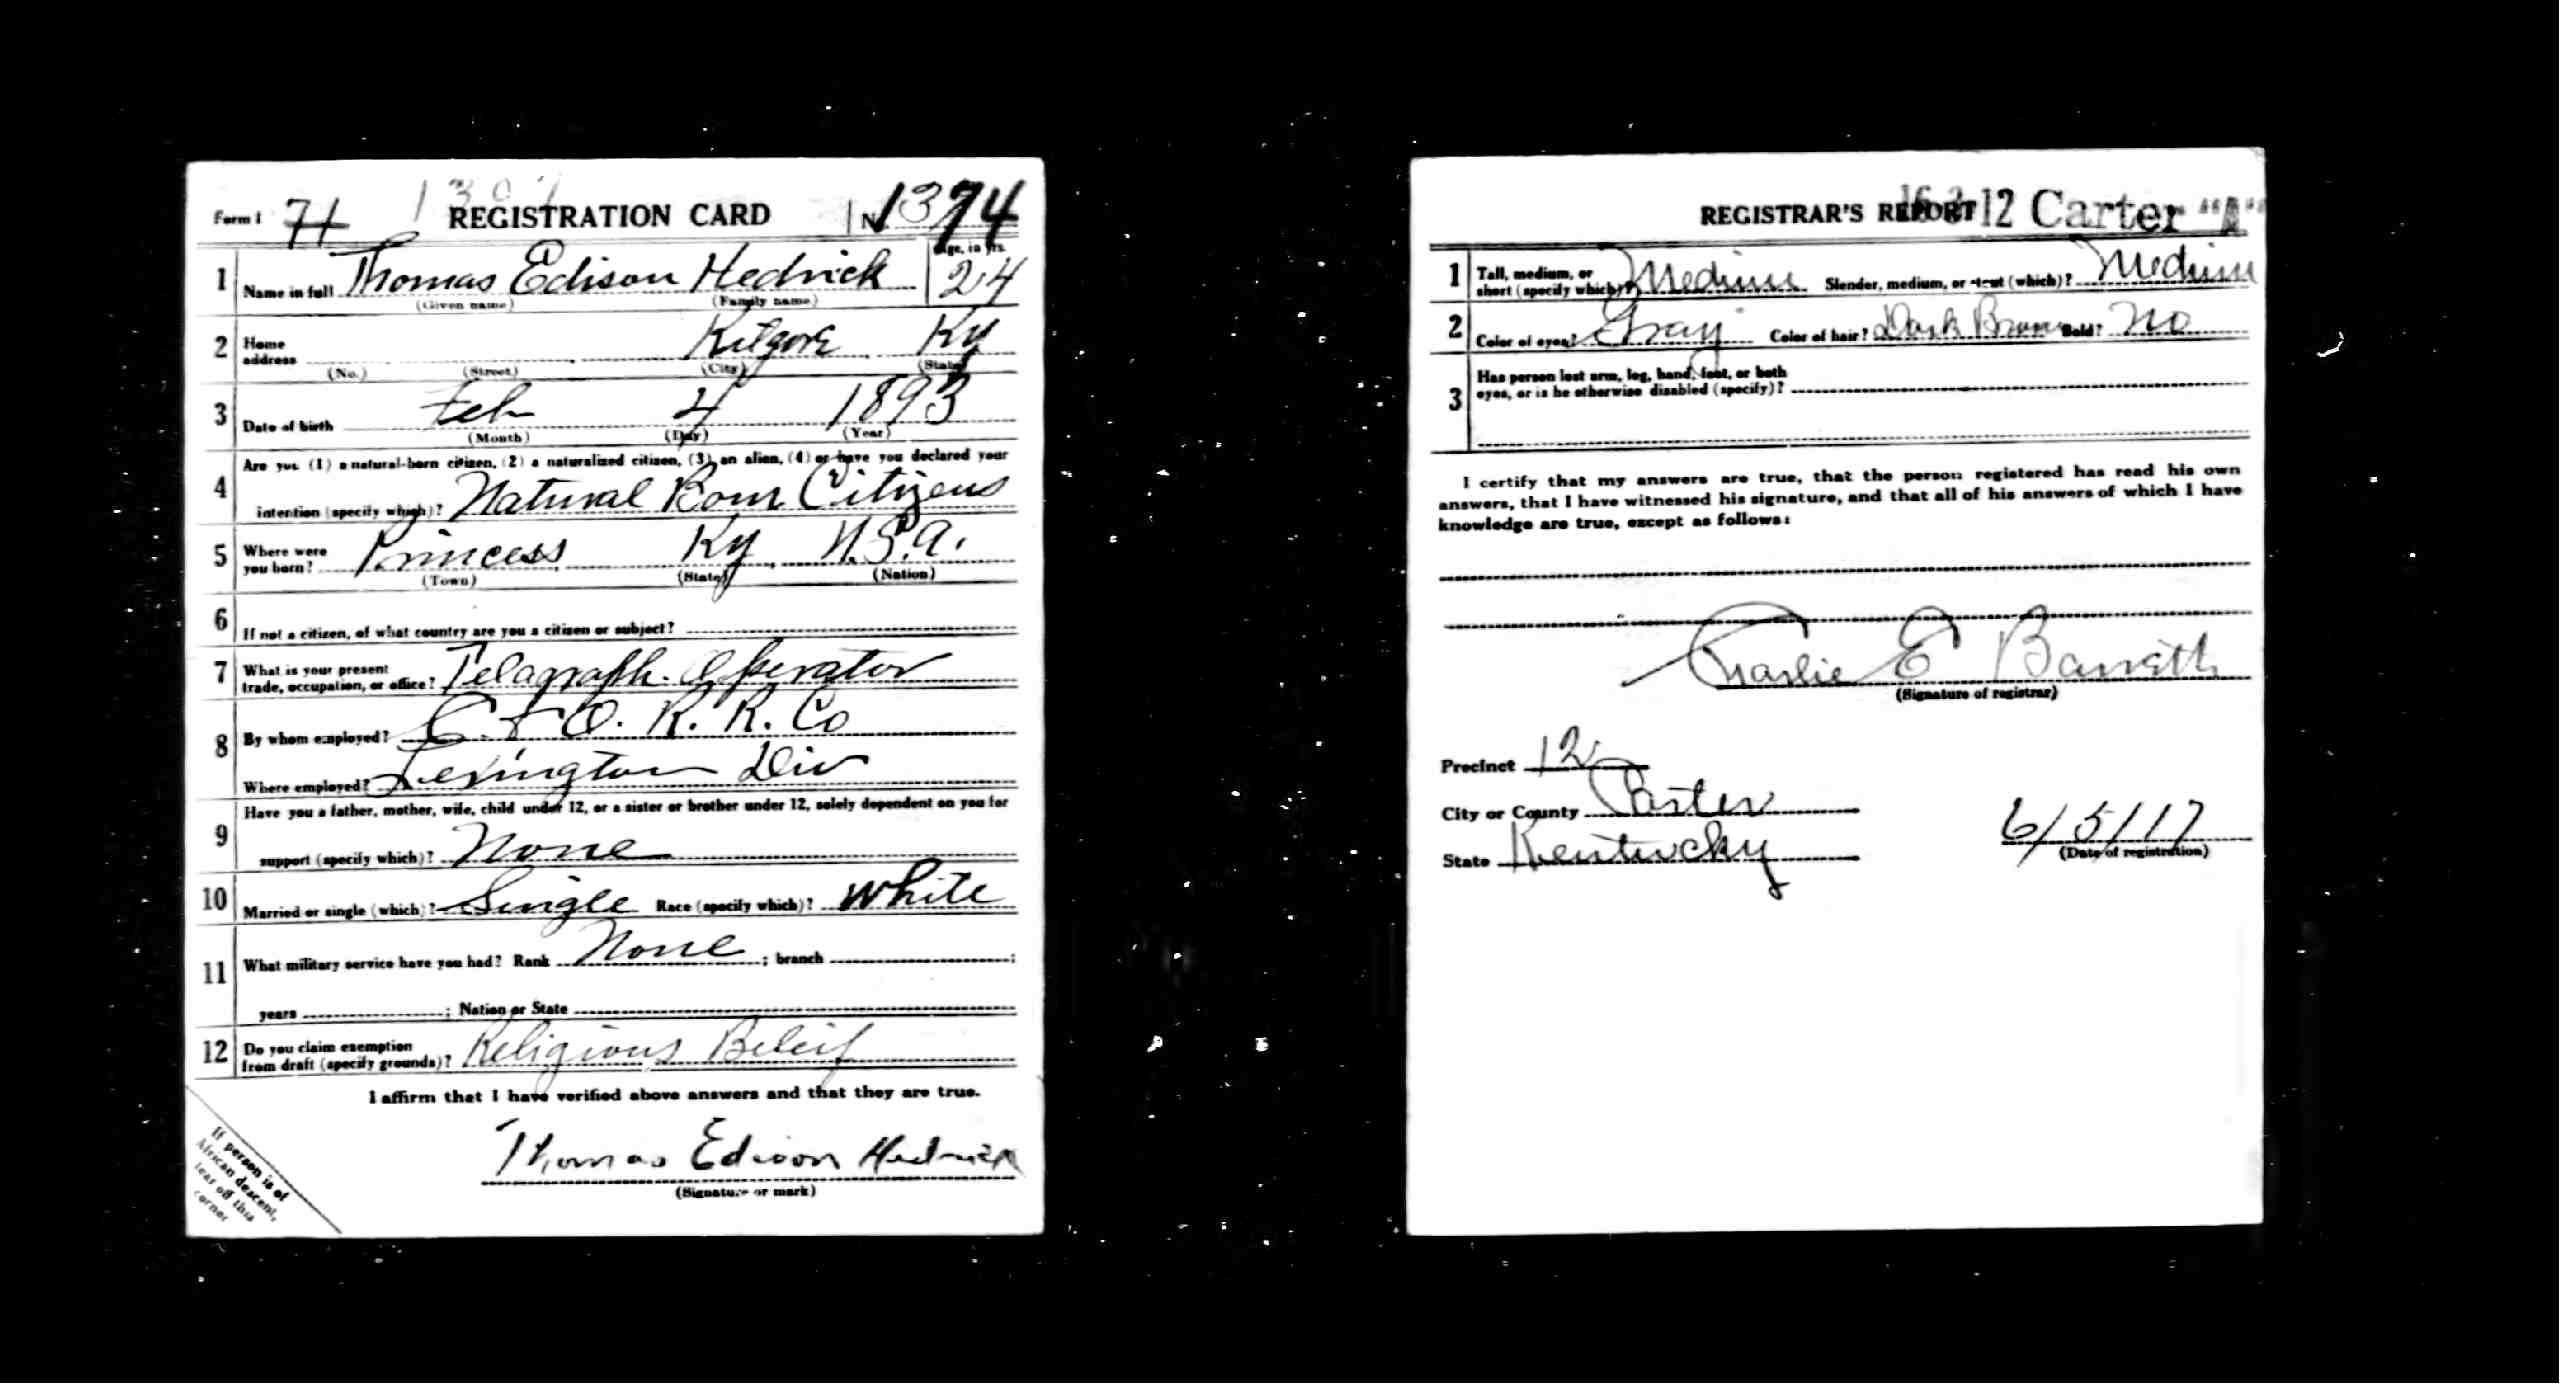 Form 1 71 REGISTRATION CARD No. 1374
Age, in yrs.
1 Name in full Thomas Edison Hedrick 24
(Given name) (Family name)
2 Home address Kilgore Ky
(No.) (Street) (City) (State)
3 Date of birth Feb 4 1893
(Month) (Day) (Year)
4 Are you (1) a natural-born citizen, (2) a naturalized citizen, (3) an alien, (4) or have you declared your
intention (specify which)? Natural Born Citizens
5 Where were you born? Princess Ky U.S.A.
(Town) (State) (Nation)
6 If not a citizen, of what country are you a citizen or subject?
7 What is your present trade, occupation, or office? Telagraph Operator
8 By whom employed? C. & O. R. R. Co
Where employed? Lexington Div
9 Have you a father, mother, wife, child under 12, or a sister or brother under 12, solely dependent on you for
support (specify which)? None
10 Married or single (which)? Single Race (specify which)? White
11 What military service have you had? Rank None ; branch ;
years ; Nation or State
12 Do you claim exemption from draft (specify grounds)? Religious Beleif
I affirm that I have verified above answers and that they are true.
Thomas Edison Hedrick
(Signature or mark)
If person is of
African descent,
tear off this
corner
REGISTRAR'S REPORT 16 3 12 Carter "A"
1 Tall, medium, or short (specify which)? Medium Slender, medium, or stout (which)? Medium
2 Color of eyes? Gray Color of hair? Dark Brown Bald? No
3 Has person lost arm, leg, hand, foot, or both
eyes, or is he otherwise disabled (specify)?
I certify that my answers are true, that the person registered has read his own
answers, that I have witnessed his signature, and that all of his answers of which I have
knowledge are true, except as follows:
Charlie E
(Signature of registrar)
Precinct 12
City or County Carter
State Kentucky
6/5/17
(Date of registration)